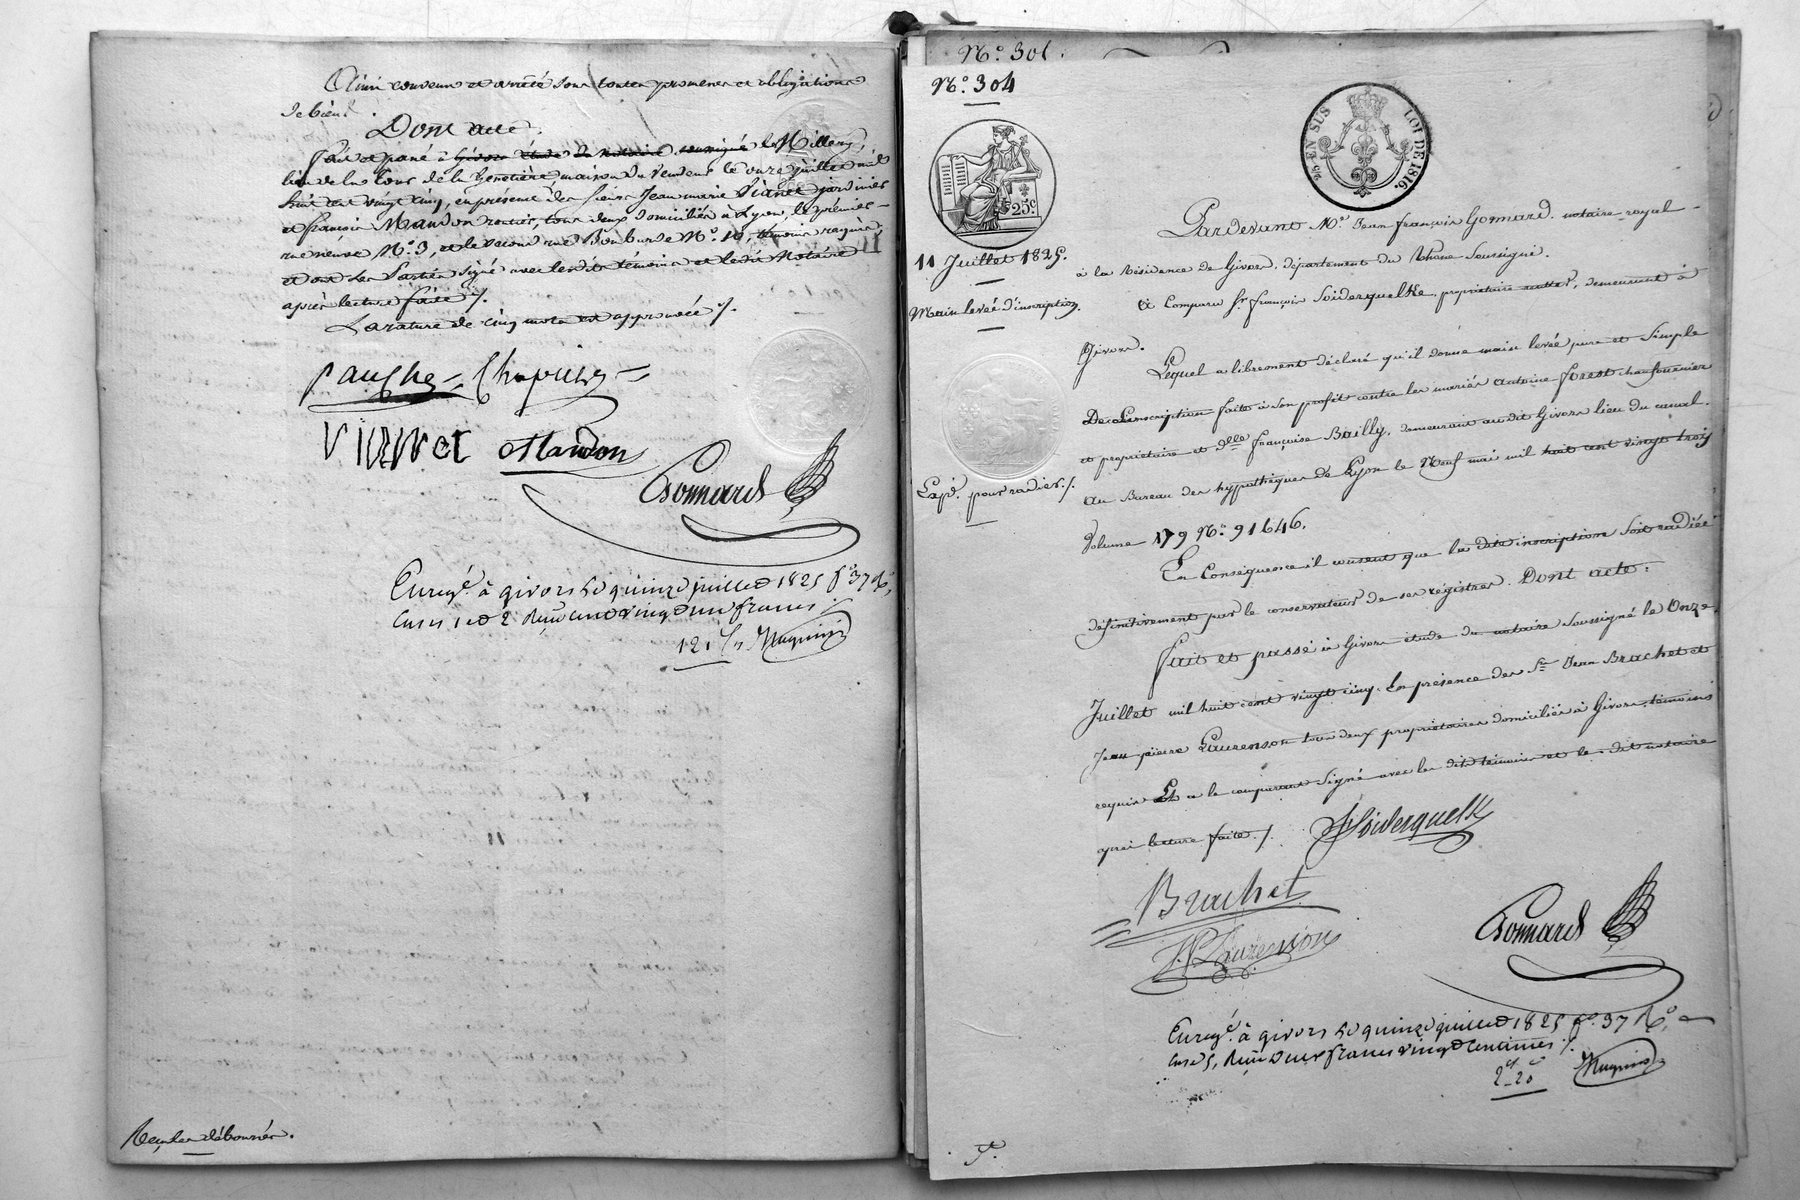 Ainsi convenu et arrêté sous toutes promesses et obligations
de biens.
Dont acte.
fait et passé à Givors étude du notaire soussigné le Millery,
lieu de la tour de la maison du vendeur le onze juillet mil
huit cent vingt cinq, en présence des sieurs Jean marie Vianet jardinier
et françois Mandon rentier, tous deux domiciliés à Lyon, le premier
rue neuve N.o 3, et le second rue Bourbon N.o 10, témoins requis,
et ont les Parties signé avec lesdits témoins et ledit Notaire
après lecture faite ./.
La rature de cinq mots est approuvée ./.
Chapuis
Vianet Mandon
Gonnard
Enreg.é à givors le quinze juillet 1825 f.o 37 R.o,
cases 1 et 2 Reçu cent vingt un francs.
121 fs
Reçu les débourses.
N.o 301.
N.o 304
25c
25 EN SUS LOI DE 1816.
11 Juillet 1825.
Main levée d'inscription.
Expé. pour radier ./.
Pardevant M.e Jean françois Gonnard, notaire royal
à la Résidence de Givors, département du Rhône soussigné.
A Comparu Sr. françois Soiderquelke, propriétaire, demeurant à
Givors.
Lequel a librement déclaré qu'il donne main levée pure et simple
De l'inscription faite à son profit contre les mariés Antoine forest chaufournier
et propriétaire et Delle françoise Bailly, demeurant audit Givors lieu du canal.
Au Bureau des hypothèques de Lyon le Neuf mai mil huit cent vingt trois
Volume 179 N.o 91646.
En Conséquence il consent que la dite inscription soit radiée
définitivement par le conservateur de ses régistres. Dont acte:
fait et passé à Givors étude du notaire soussigné le Onze
Juillet mil huit cent vingt cinq. En présence des Srs Jean Brachet et
Jean pierre Laurenson tous deux propriétaires domiciliés à Givors, témoins
requis Et a le comparant Signé avec les dits témoins et le dit notaire
après lecture faite ./. Soiderquelk
Brachet
J.P. Laurenson
Gonnard
Enreg.é à givors le quinze juillet 1825 f.o 37 R.o,
case 5, Reçu deux francs vingt centimes ./.
2f 20c